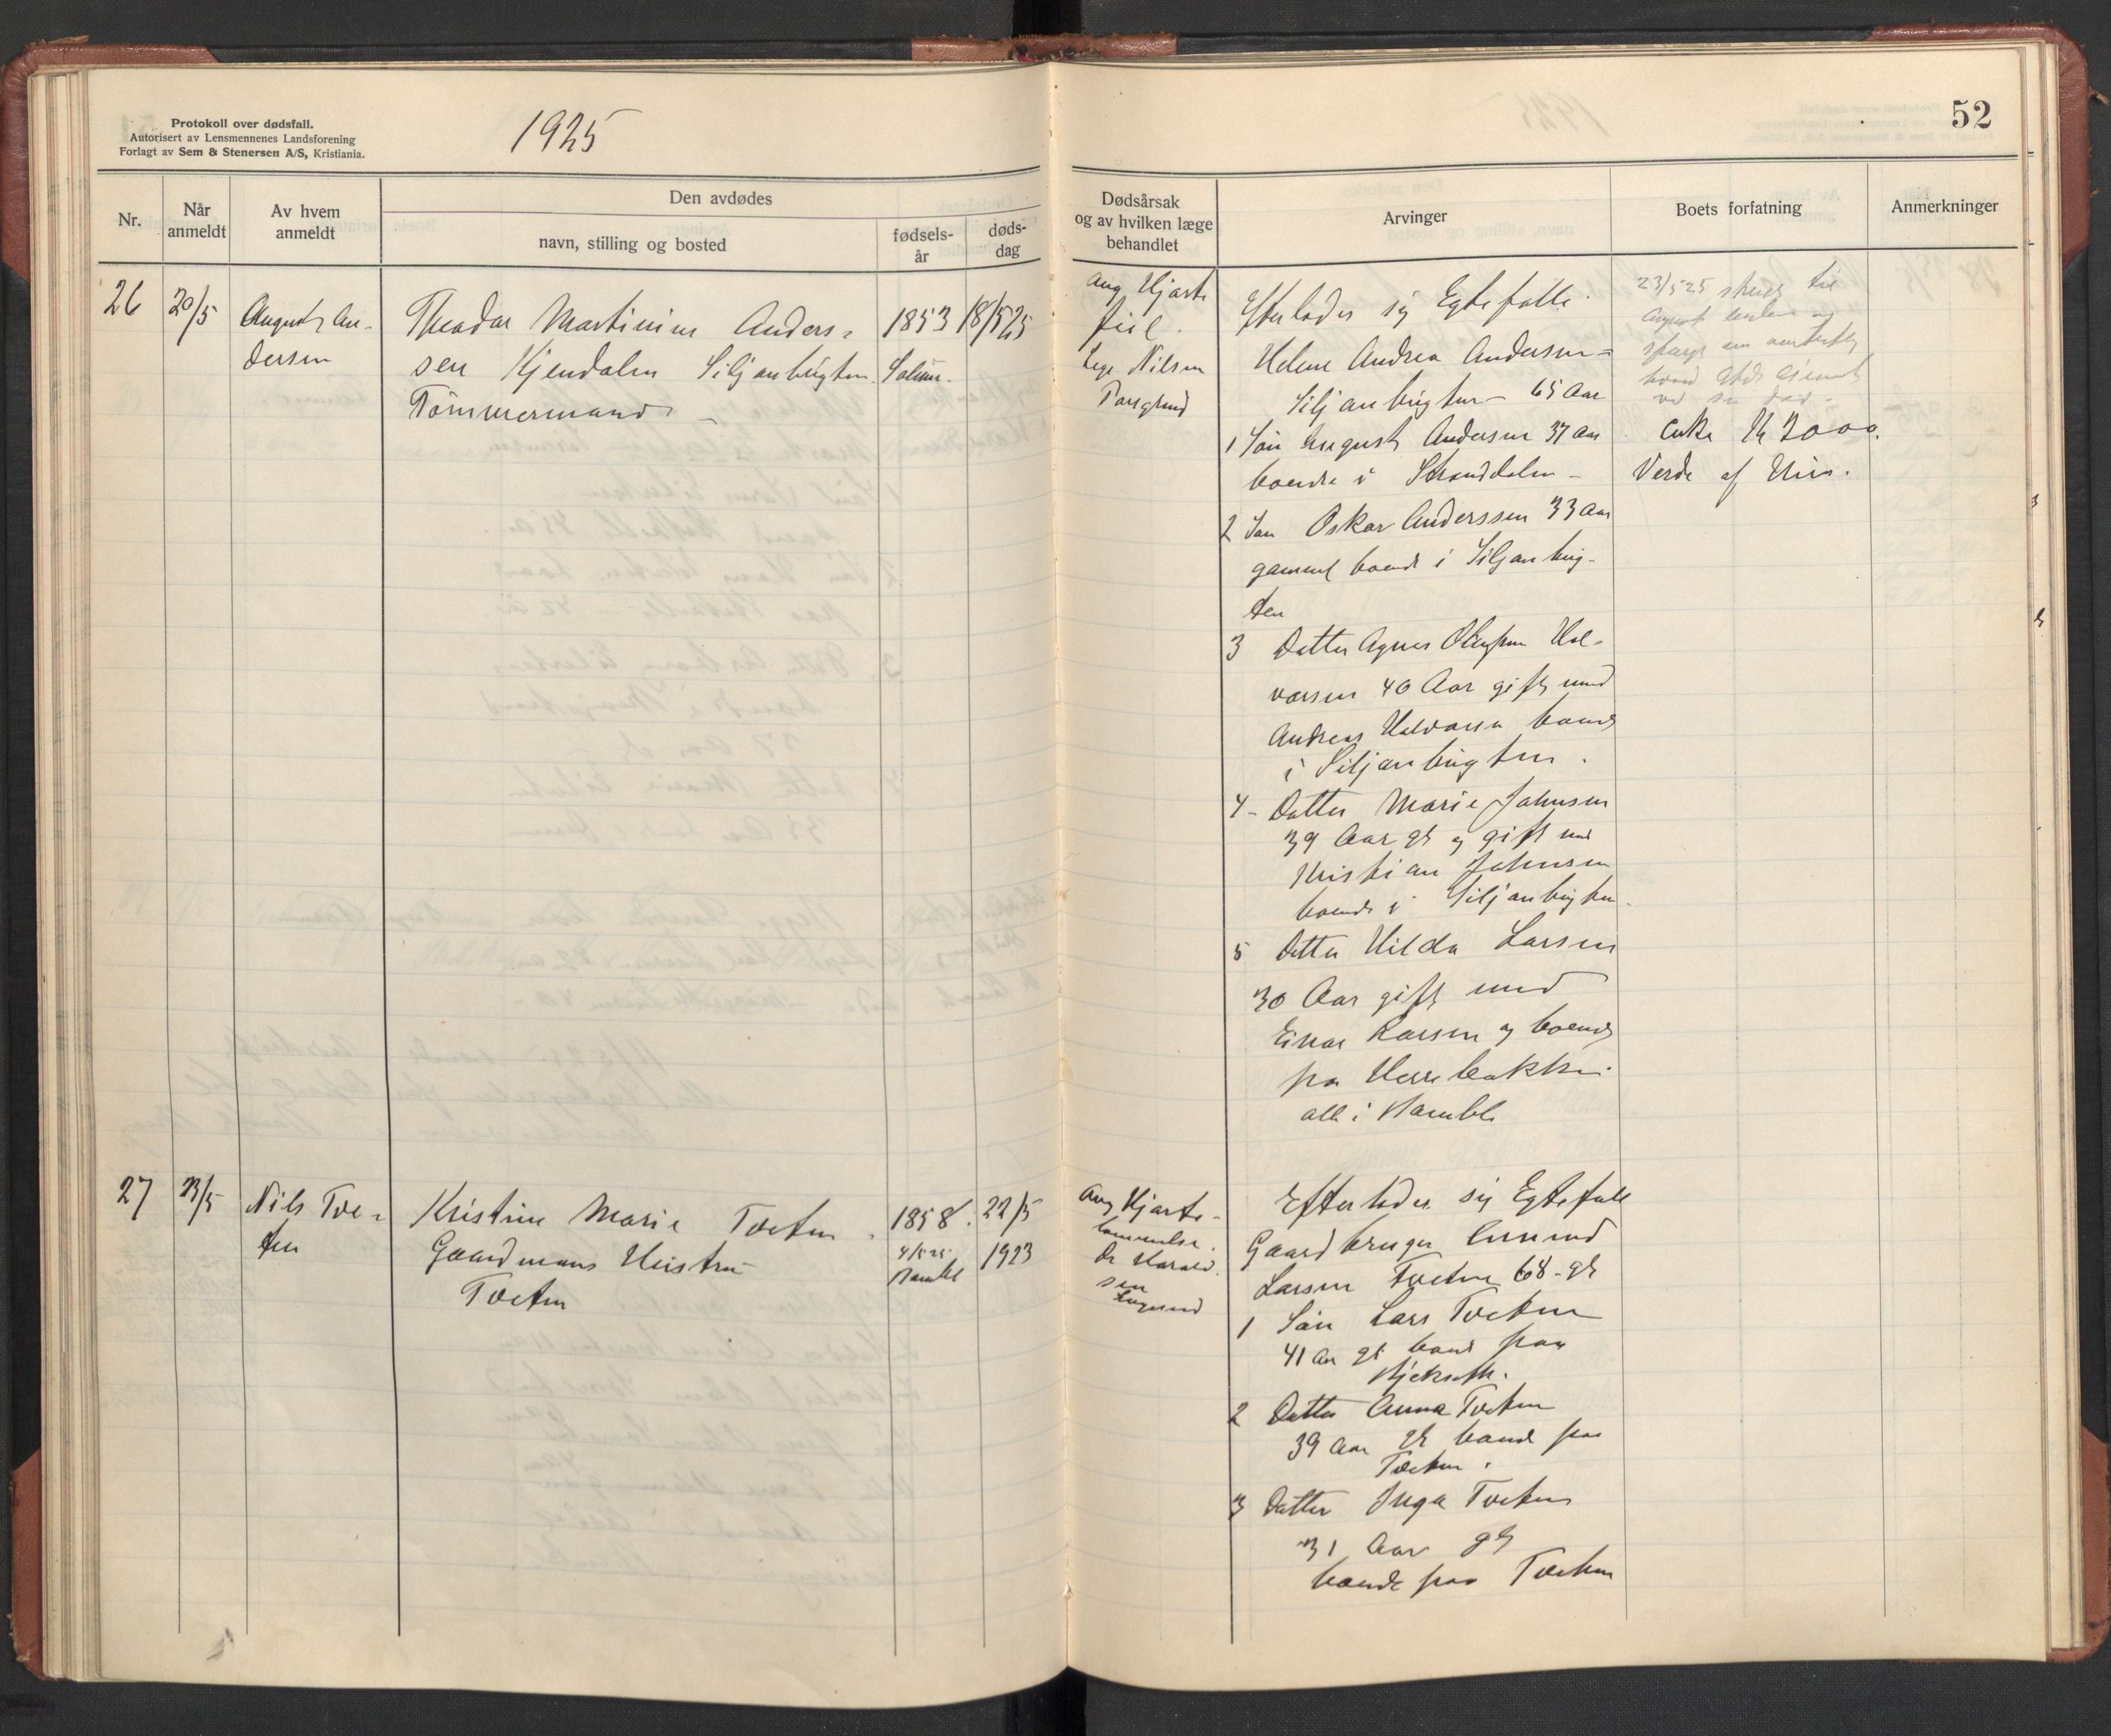 Protokoll over dødsfall.
Autorisert av Lensmennenes Landsforening
Forlagt av Sem & Stenersen A/S, Kristiania.
1925
52
Nr.
Når anmeldt
Av hvem anmeldt
Den avdødes
navn, stilling og bosted
fødsels-år
døds-dag
Dødsårsak
og av hvilken læge
behandlet
Arvinger
Boets forfatning
Anmerkninger
26
20/5
August An-
dersen
Theodor Martinius Anders-
sen Kjendalen Siljanbugten
Tømmermand
1853
Solum.
18/5 25
Ang Hjarte
feil.
Lege Nilsen
Porsgrund
Efterlader sig Egtefælle
Helene Andrea Andersen
Siljanbugten 65 Aar
1 Søn August Andersen 37 Aar
boende i Stranddalen
2 Søn Oskar Anderssen 33 Aar
gammel boende i Siljanbug-
ten
3 Datter Agnes Hal-
vorsen 40 Aar gift med
Andreas Halvorsen boende
i Siljanbugten.
4- Datter Marie Johnsen
39 Aar gl og gift med
Kristian Johnsen
boende i Siljanbugten
5 Datter Hilda Larsen
30 Aar gift med
Einar Larsen og boende
paa Herrebakken
alle i Bamble
23/5 25 til
August og
om
ved
Kr 2000.
Verde af Hus.
27
23/5
Nils Tve-
ten
Kristine Marie Tveten
Gaardmans Hustru
Tveten
1858.
Bamble
22/5
1923
Ang Hjarte-
lammelse.
Dr Harald-
sen
Efterlader sig Egtefelle
Gaardbruger Amund
Larsen Tveten 68 gl
1 Søn Lars Tveten
41 Aar gl boende paa
2 Datter Anna Tveten
39 Aar gl boende paa
Tveten.
3 Datter Inga Tveten
31 Aar gl
boende paa Tveten